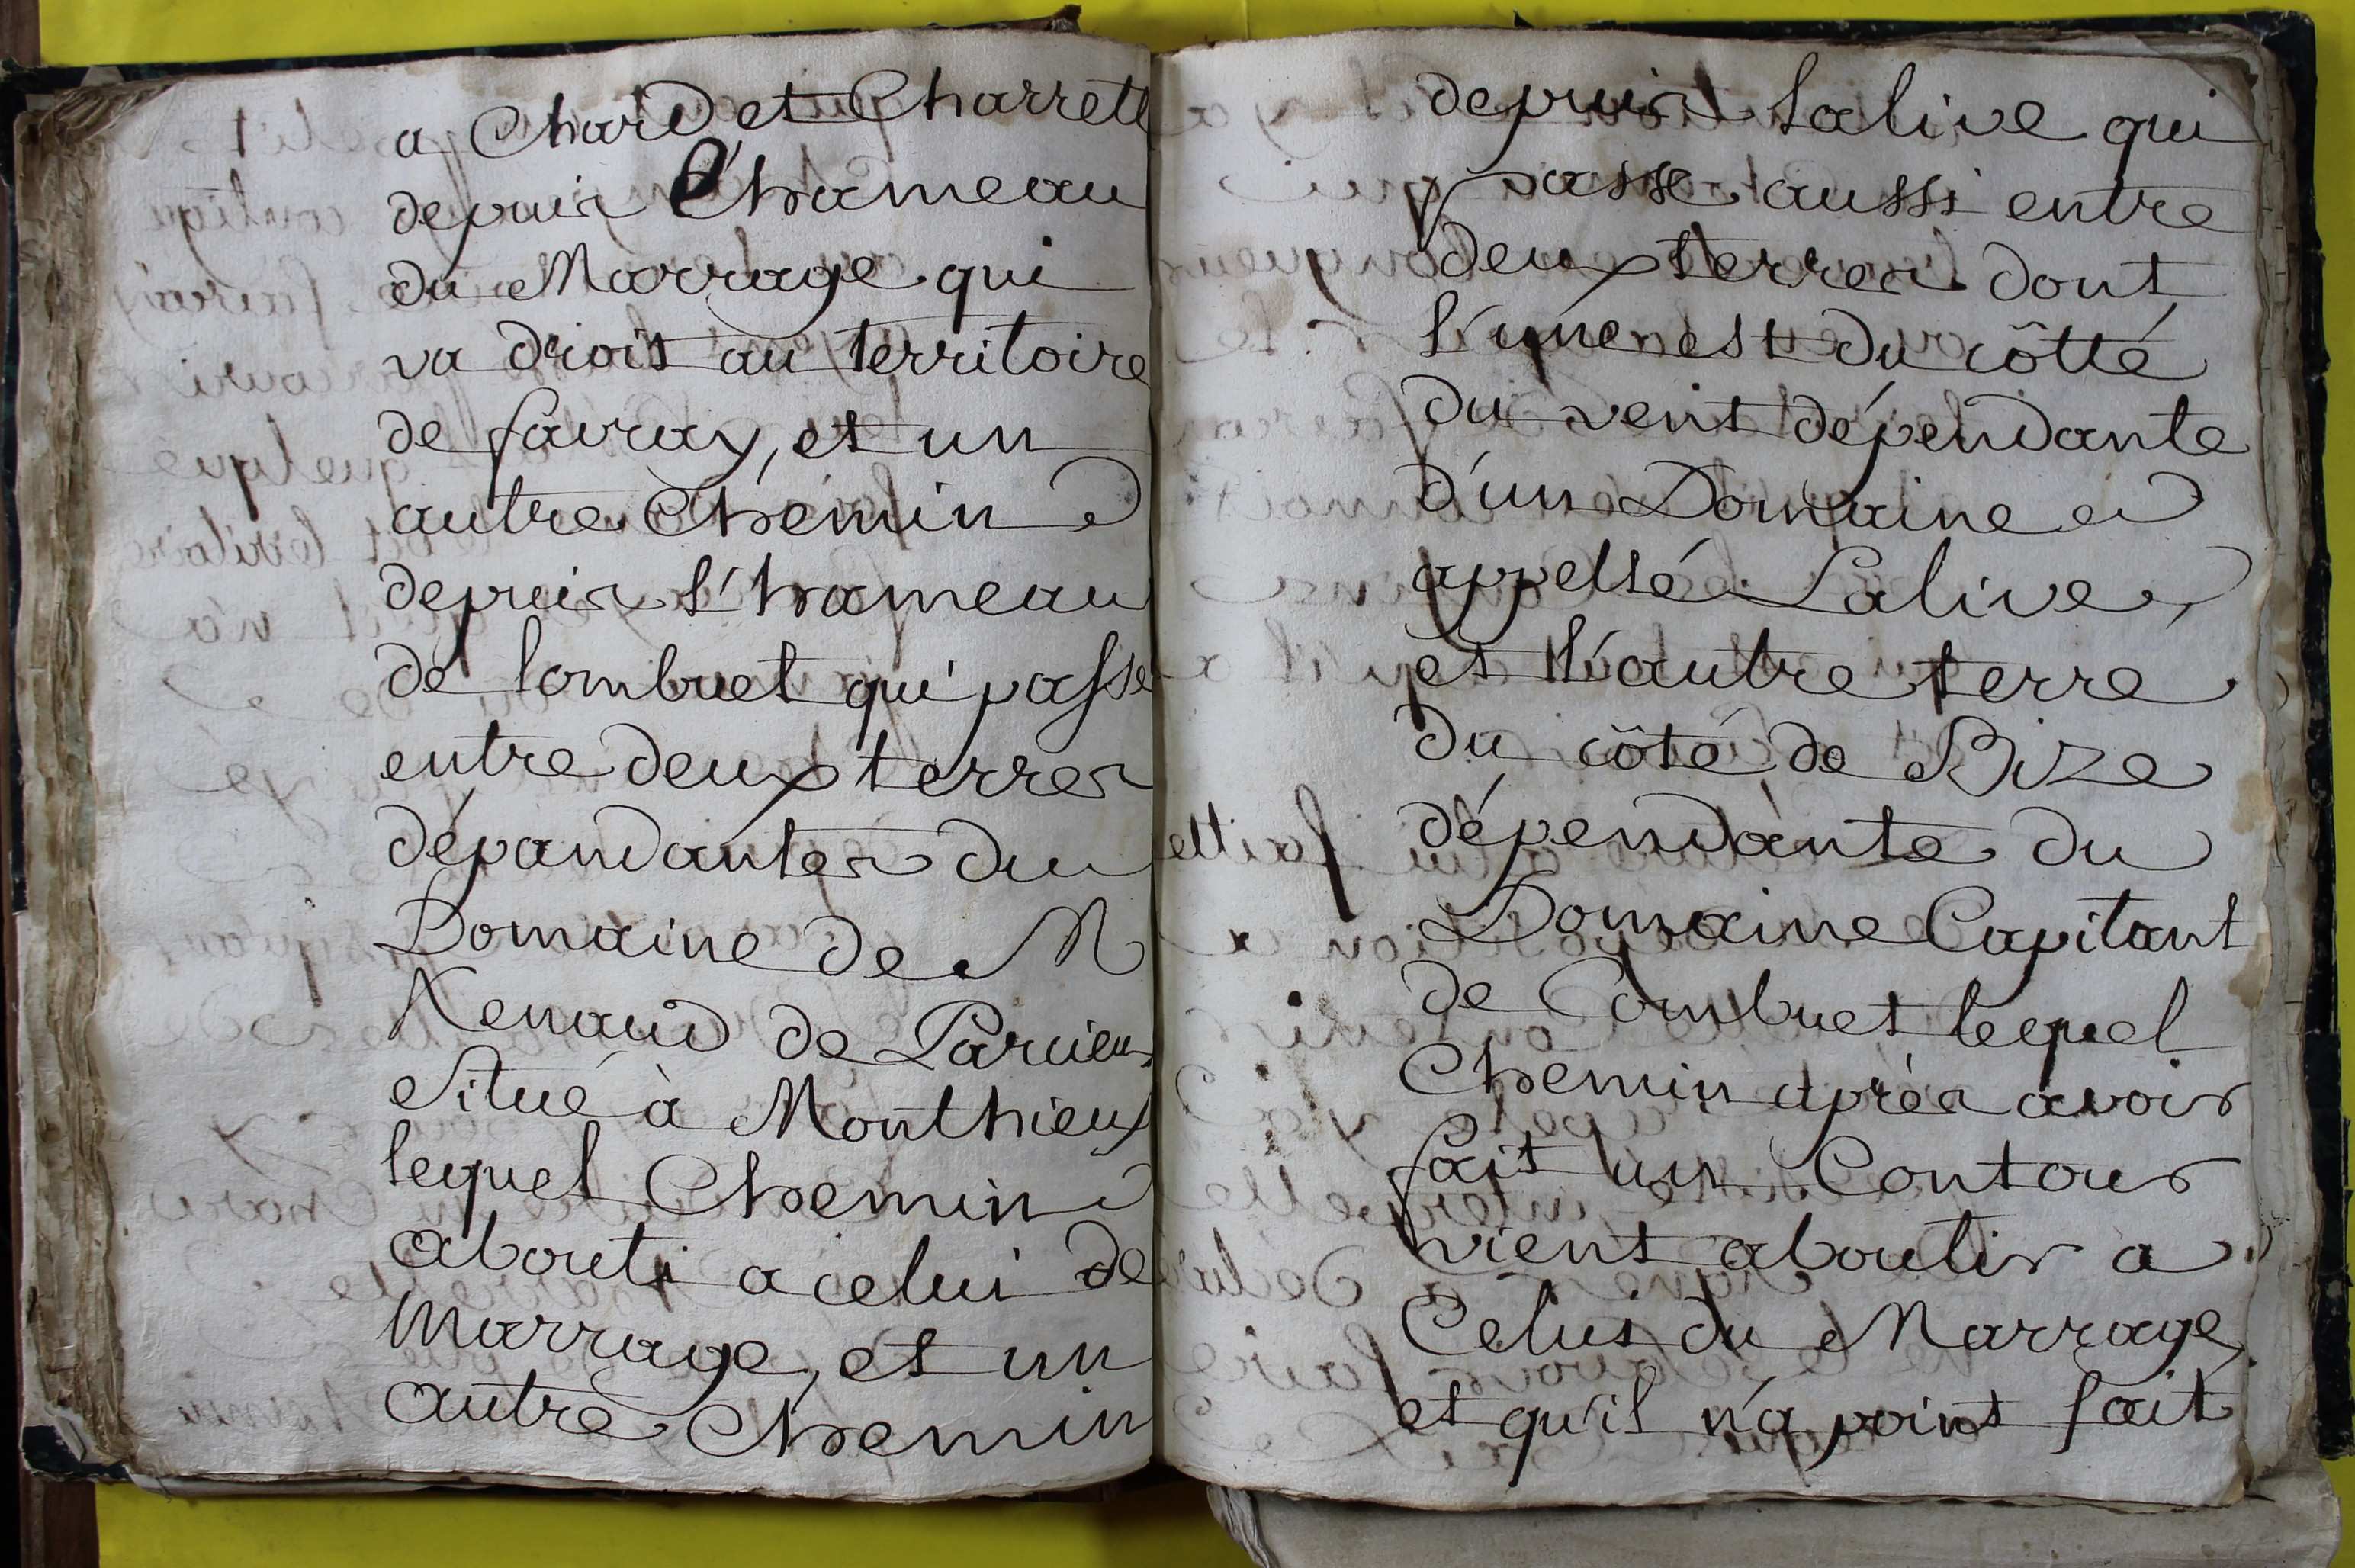 a Chard et Charrette
depuis l'hameau
du Marrage qui
va droit au territoire
de favray, et un
autre Chemin
depuis l'hameau
de Combuet qui passe
entre deux terres
dépandantes du
Domaine de M
Renaud de Parcieux
Situé à Monthieux
lequel Chemin
abouti a celui de
Marrage, et un
autre Chemin
depuis Lalive qui
passe aussi entre
deux terres dont
l'une est du côtté
du vent dépendante
d'un Domaine
appellé Lalive,
et l'autre terre
du côté de Bize
dépendante du
Domaine Capitant
de Combuet lequel
Chemin après avoir
fait un Contour
vient aboutir a
Celui du Marrage,
et qu'il n'a point fait